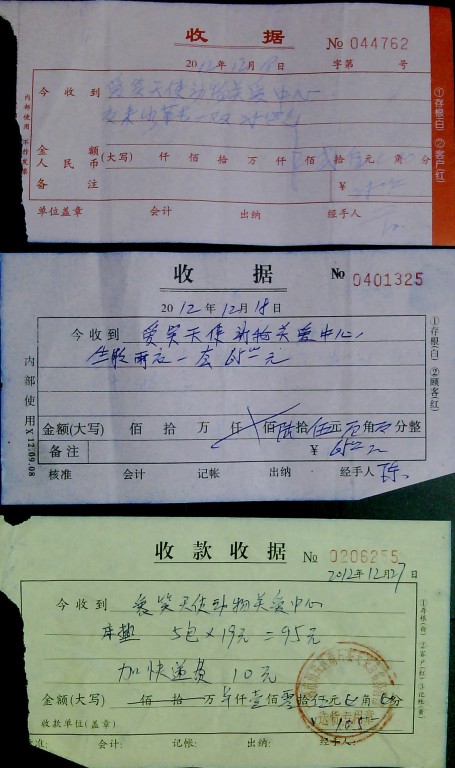 收 据
No 044762
2012年12月18日 字第 号
今收到 爱笑天使动物关爱中心
金额 人民币 (大写) 仟 佰 拾 万 仟 佰 拾 元 角 分
备注 ¥
单位盖章 会计 出纳 经手人
内部使用 不作发票
①存根(白) ②客户(红)
收 据
No 0401325
2012年12月18日
今收到 爱笑天使动物关爱中心
雨衣一套 65元
金额(大写) 佰 拾 万 仟 佰陆拾伍元 角 分整
备注 ¥ 65
核准 会计 记帐 出纳 经手人 陈
内部使用 X 12.09.08
①存根(白) ②顾客(红)
收款收据 No 0206255
2012年12月27日
今收到 爱笑天使动物关爱中心
床垫 5包×19元=95元
加快递费 10元
金额(大写) 佰 拾 万 仟壹佰零拾 元 角 分
收款单位(盖章) ¥ 105
核准: 会计: 记帐: 出纳: 经手人: